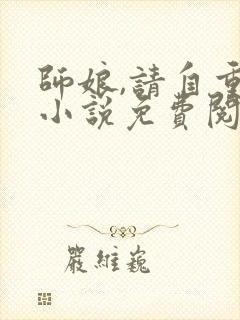 師娘,請自重
小說免費閱
嚴維巍